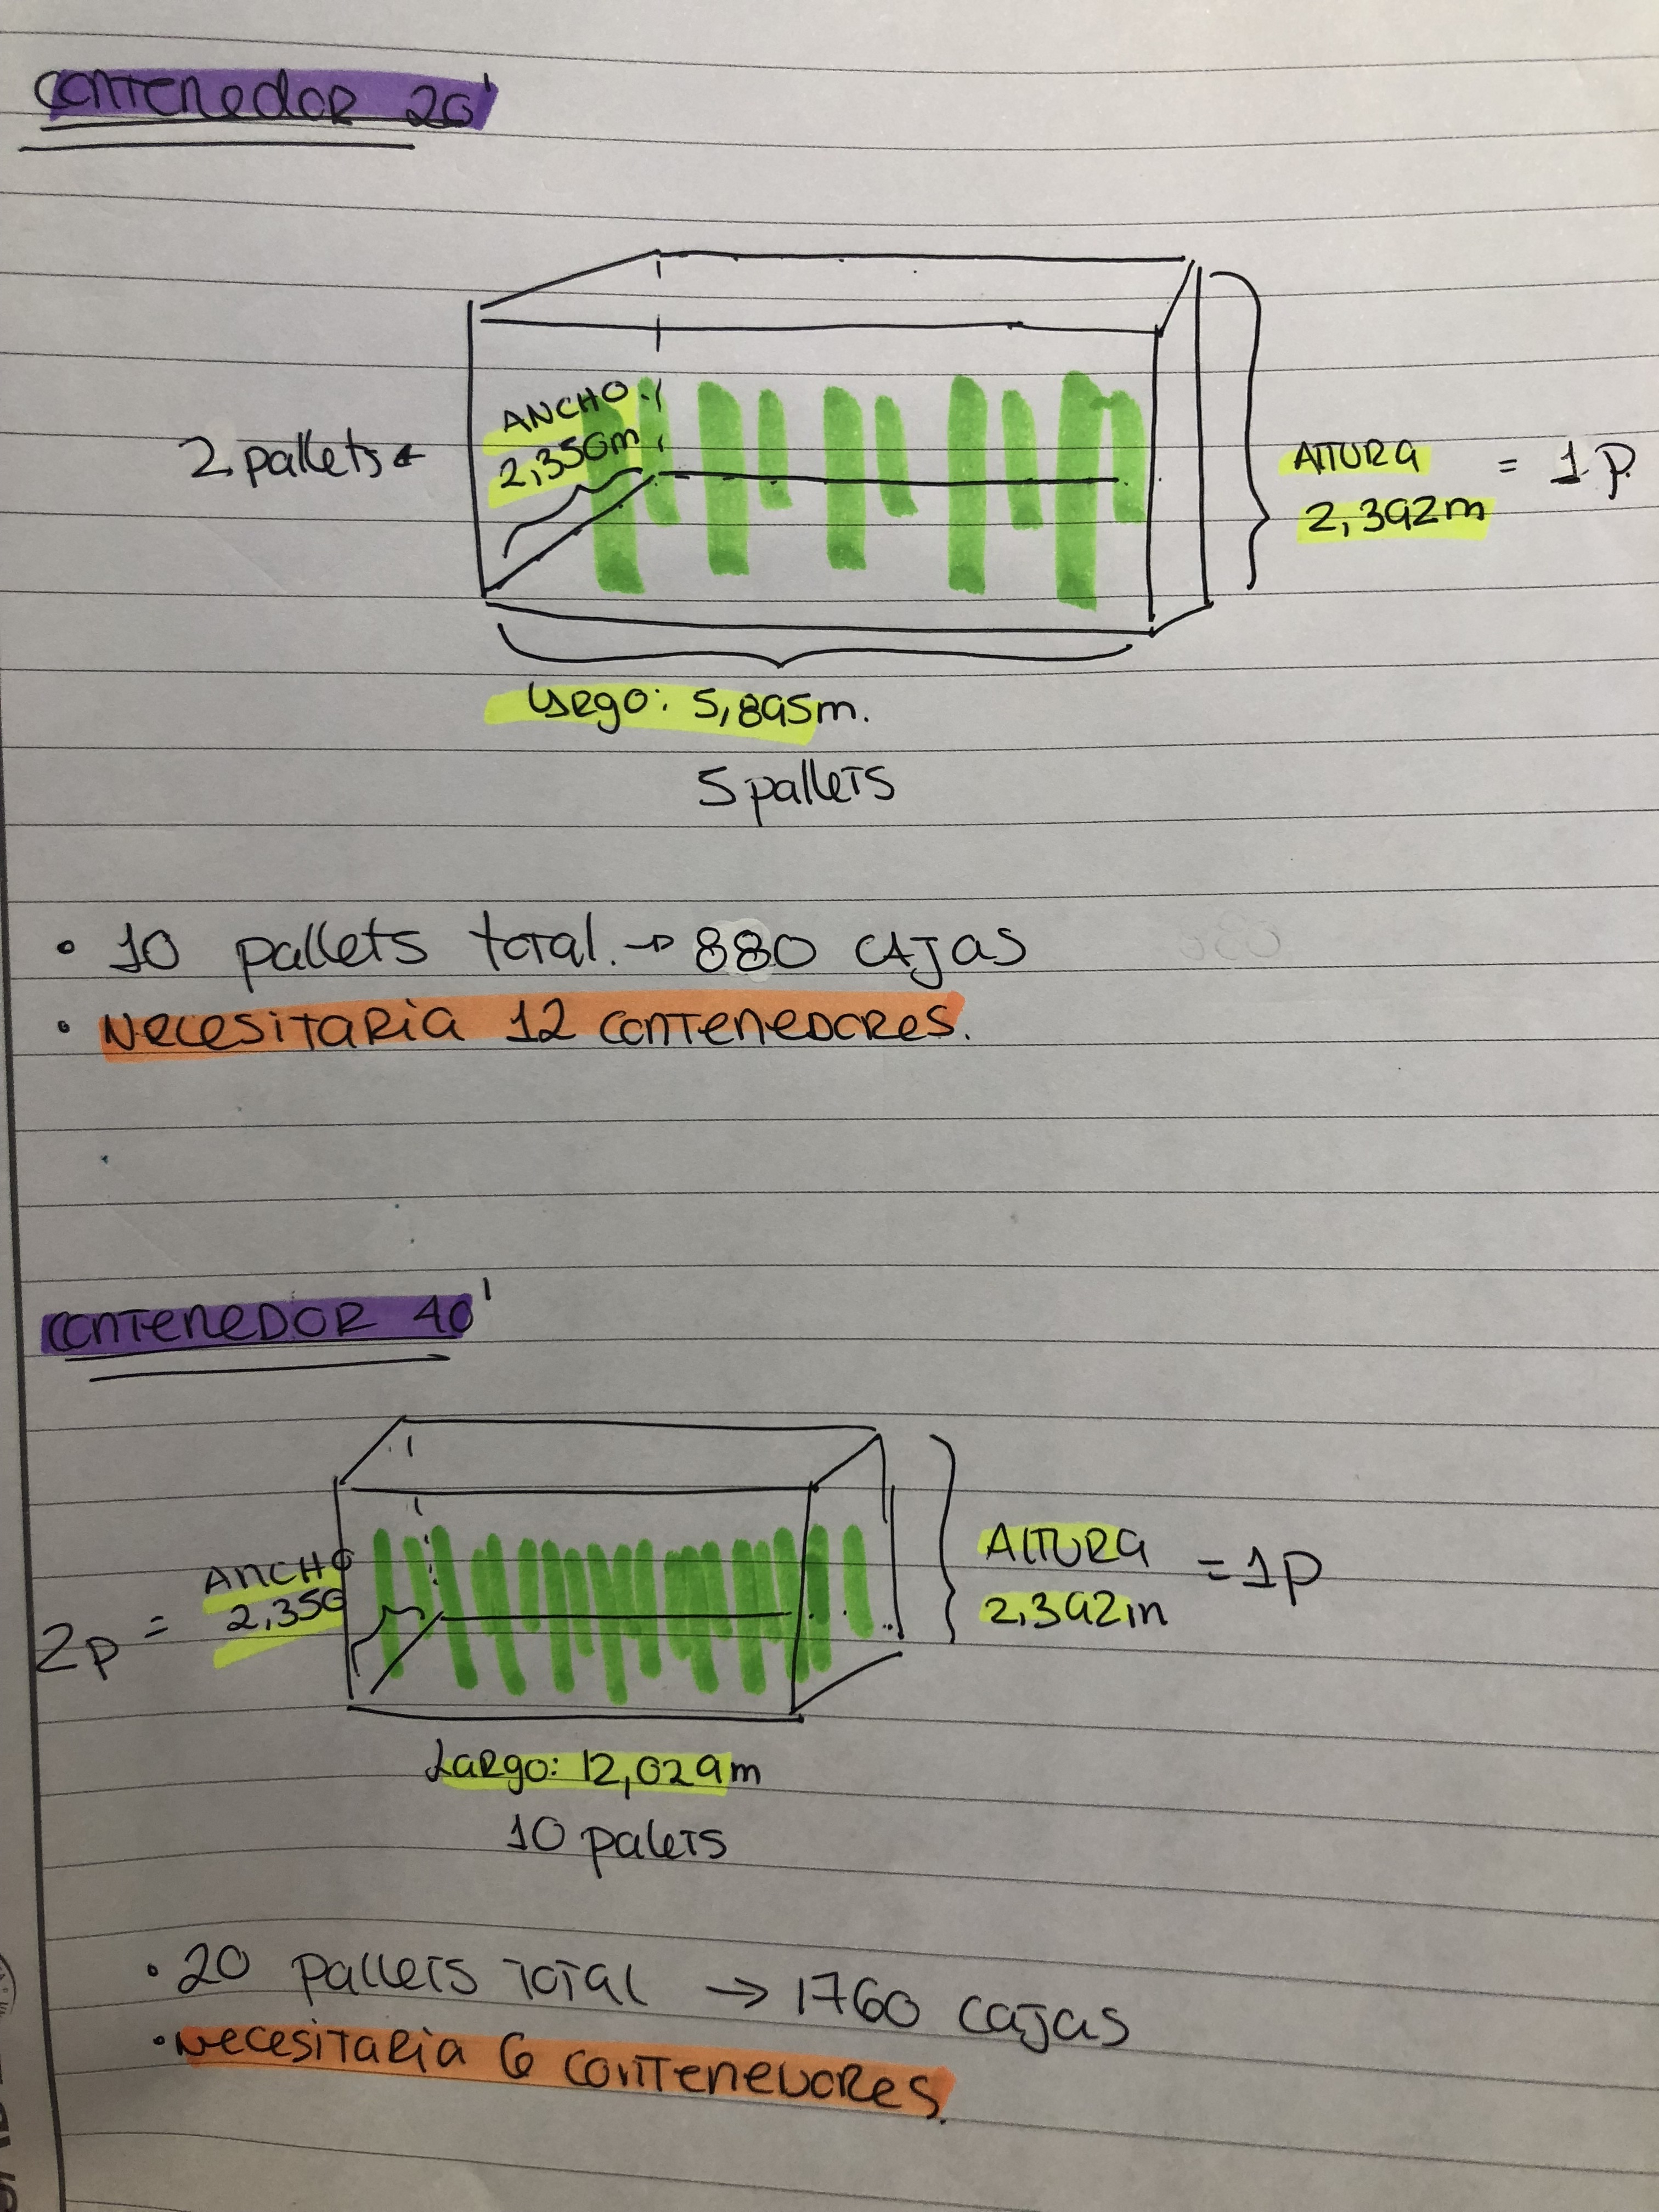 Contenedor 20'
ANCHO
2,350m
2 pallets ←
ALTURA = 1 P.
2,392m
Largo: 5,895m.
5 pallets
• 10 pallets total. → 880 CAJAS
• Necesitaria 12 contenedores.
Contenedor 40'
ANCHO
2,350
2p =
ALTURA = 1P
2,392m
Largo: 12,029m
10 palets
• 20 pallets total → 1760 cajas
• Necesitaria 6 contenedores.